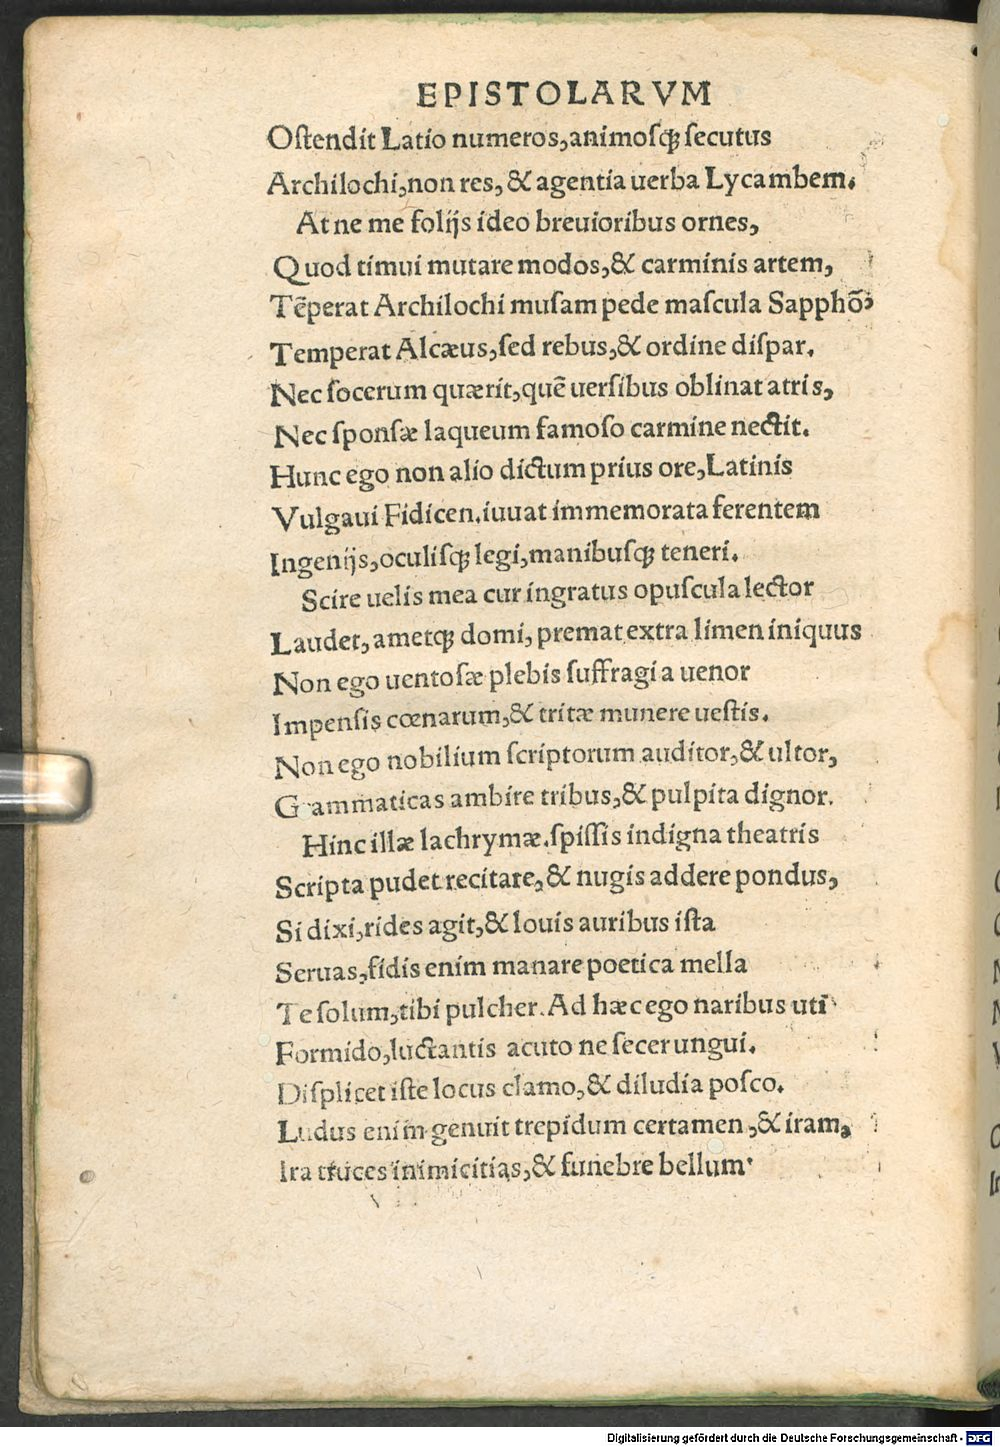 EPISTOLARVM
Oſtendit Latio numeros,animoſqꝫ ſecutus
Archilochi,non res, & agentia uerba Lycambem.
At ne me folijs ideo breuioribus ornes,
Quod timui mutare modos,& carminis artem,
Tēperat Archilochi muſam pede maſcula Sapphō
Temperat Alcæus,ſed rebus,& ordine diſpar.
Nec ſocerum quærit,quē uerſibus oblinat atris,
Nec ſponſæ laqueum famoſo carmine nectit.
Hunc ego non alio dictum prius ore,Latinis
Vulgaui Fidicen.iuuat immemorata ferentem
Ingenijs,oculiſqꝫ legi,manibuſqꝫ teneri.
Scire uelis mea cur ingratus opuſcula lector
Laudet, ametqꝫ domi, premat extra limen iniquus
Non ego uentoſæ plebis ſuffragia uenor
Impenſis cœnarum,& tritæ munere ueſtis.
Non ego nobilium ſcriptorum auditor,& ultor,
Grammaticas ambire tribus,& pulpita dignor.
Hinc illæ lachrymæ.ſpiſſis indigna theatris
Scripta pudet recitare,& nugis addere pondus,
Si dixi,rides agit,& Iouis auribus iſta
Seruas,fidis enim manare poetica mella
Te ſolum,tibi pulcher. Ad hæc ego naribus uti
Formido,luctantis acuto ne ſecer ungui.
Diſplicet iſte locus clamo,& diludia poſco.
Ludus enim genuit trepidum certamen,& iram,
Ira truces inimicitias,& funebre bellum
Digitalisierung gefördert durch die Deutsche Forschungsgemeinschaft - DFG